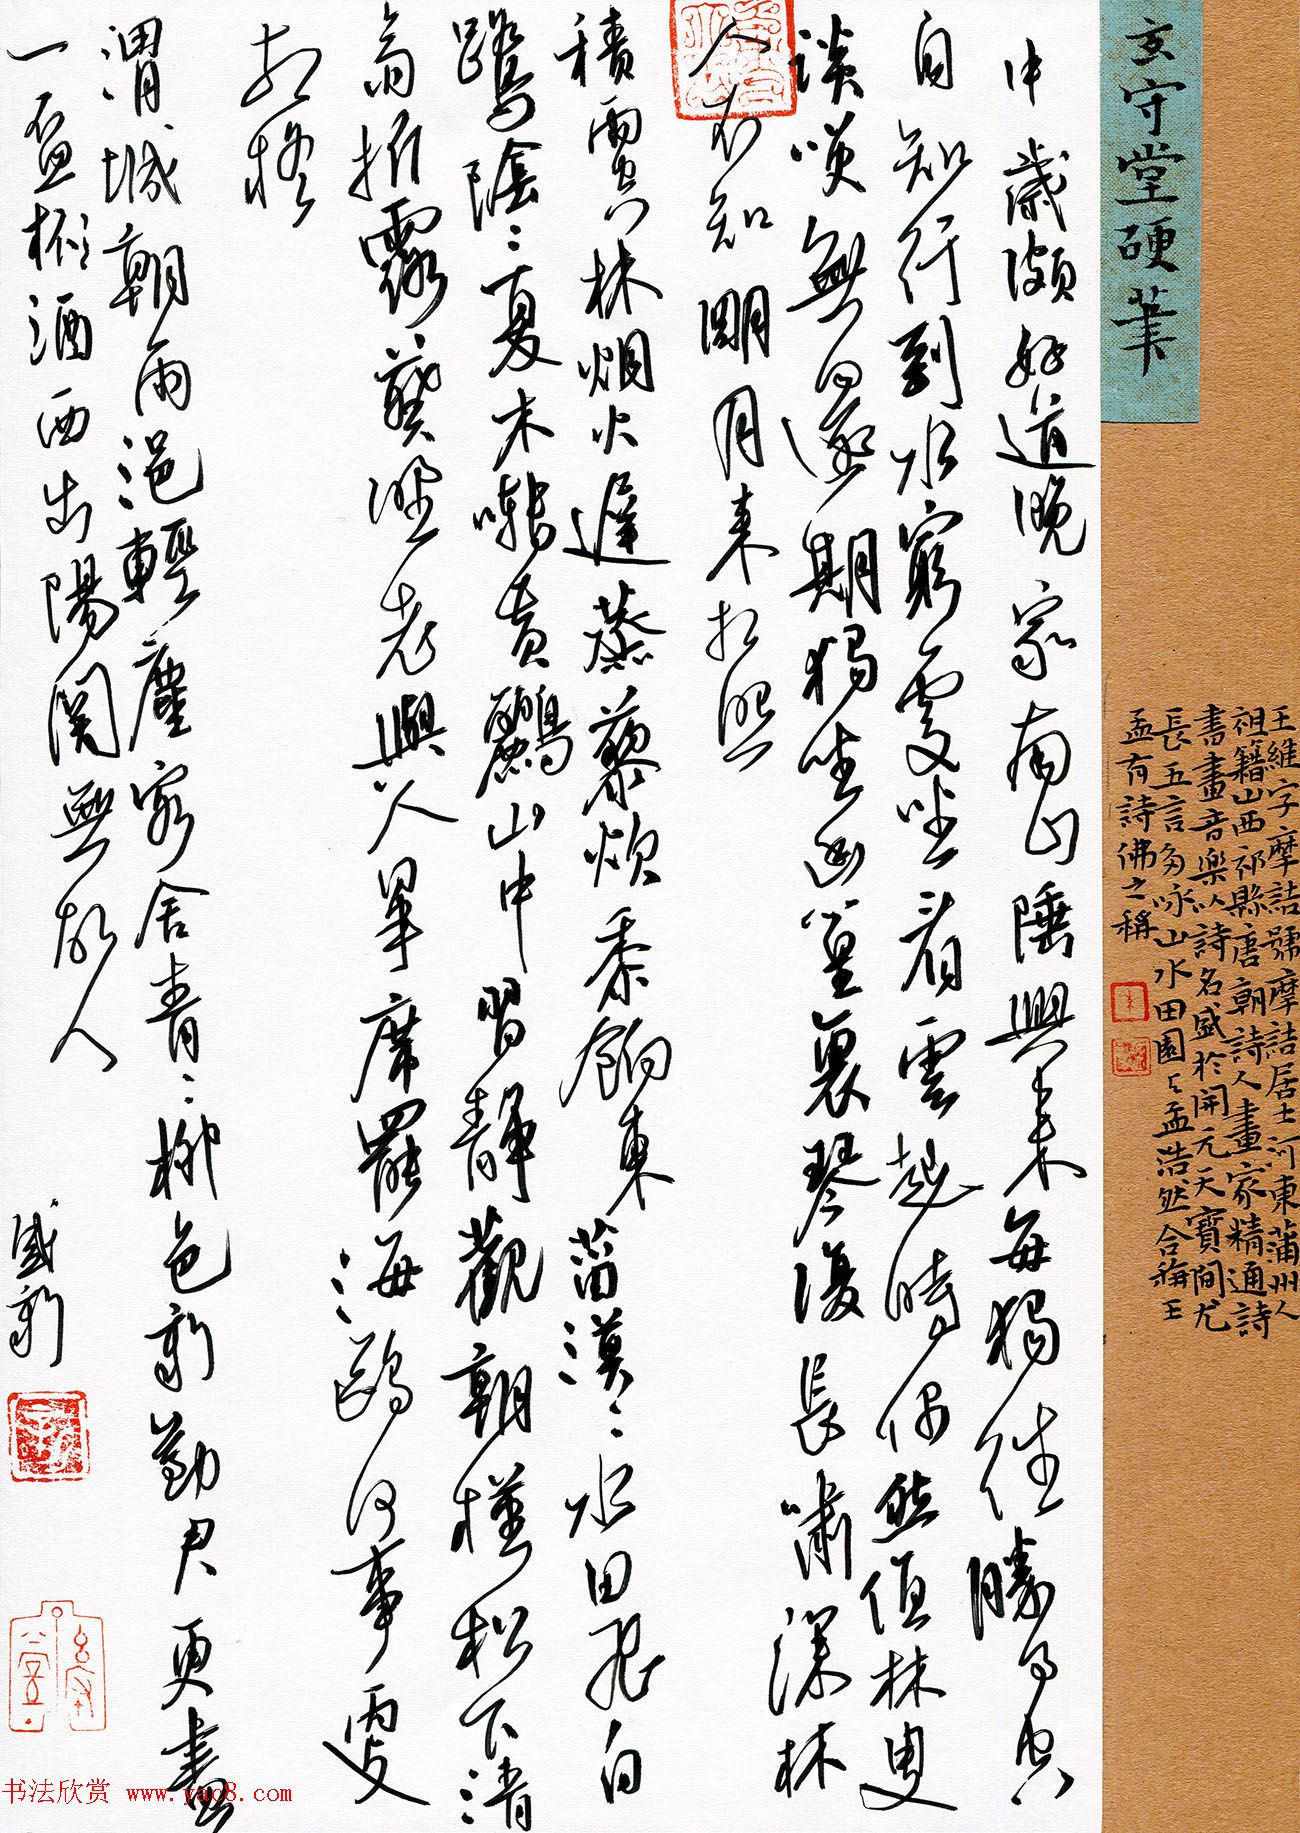 玄守堂硬筆
王維字摩詰號摩詰居士河東蒲州人
祖籍山西祁縣唐朝詩人畫家精通詩
書畫音樂以詩名盛於開元天寶間尤
長五言多咏山水田園與孟浩然合稱王
孟有詩佛之稱
中歲頗好道晚家南山陲興來每獨往勝事空
自知行到水窮處坐看雲起時偶然值林叟
談咲無還期獨坐幽篁裏琴復長嘯深林
人不知明月來相照
積雨空林烟火遲蒸藜炊黍餉東菑漠〻水田飛白
鷺陰〻夏木囀黃鸝山中習靜觀朝槿松下清
齋折露葵野老與人爭席罷海鷗何事處
相疑
渭城朝雨浥輕塵客舍青〻柳色新勸君更盡
一盃杯酒西出陽關無故人
盛新
书法欣赏 www.yac8.com